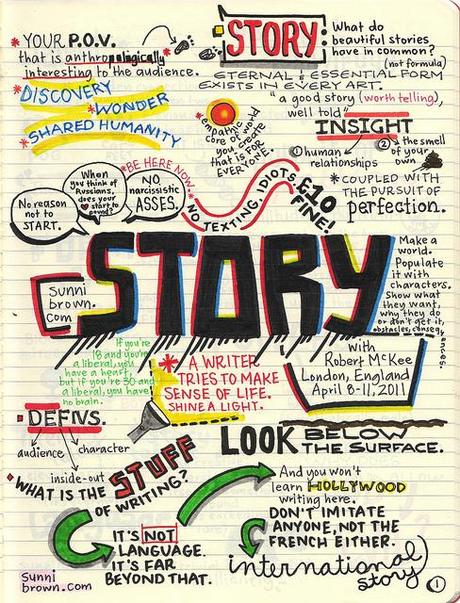 *YOUR P.O.V.
that is anthropologically
interesting to the audience.
STORY:
What do
beautiful stories
have in common?
(not formula)
ETERNAL & ESSENTIAL FORM
EXISTS IN EVERY ART.
"a good story (worth telling),
well told"
*DISCOVERY
*WONDER
*SHARED HUMANITY
*empathic
core of world
you create
that is FOR
EVERYONE.
INSIGHT
① human
relationships
② the smell
of your
own
*COUPLED WITH
THE PURSUIT OF
perfection.
No reason
not to
START.
When
you think of
Russians,
does your
start to
pound?
*BE HERE NOW.
NO
narcissistic
ASSES.
*NO TEXTING, IDIOTS
£10
FINE!
STORY
sunni
brown.
com
Make a
world.
Populate
it with
characters.
Show what
they want,
why they do
or don't get it,
obstacles, consequences.
If you're
18 and you're
a liberal, you
have a heart,
but if you're 30 and
a liberal, you have
no brain.
*A WRITER
TRIES TO MAKE
SENSE OF LIFE.
SHINE A LIGHT.
with
Robert McKee
London, England
April 8-11, 2011
DEFIVS.
audience
character
inside-out
LOOK BELOW
THE SURFACE.
*WHAT IS THE STUFF
OF WRITING?
And you won't
learn HOLLYWOOD
writing here.
DON'T IMITATE
ANYONE, NOT THE
FRENCH EITHER.
IT'S NOT
LANGUAGE.
IT'S FAR
BEYOND THAT.
international
story
sunni
brown.com
①